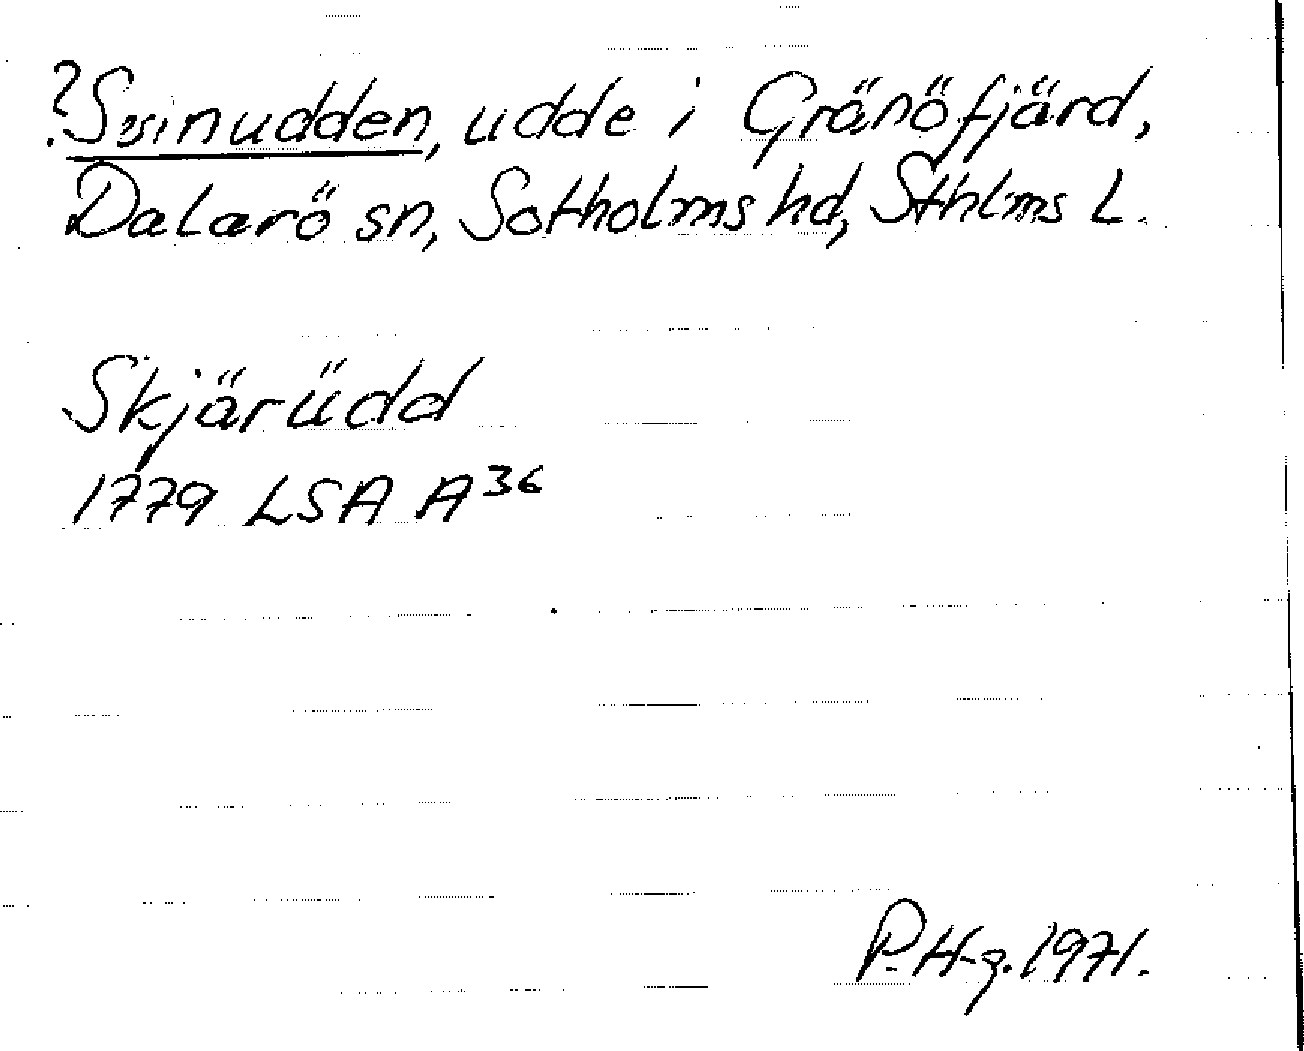 ?Svinudden, udde i Gränöfjärd,
Dalarö sn, Sotholms hd, Sthlms L.
Skjärüdd
1779 LSA A36
P. H-g. 1971.